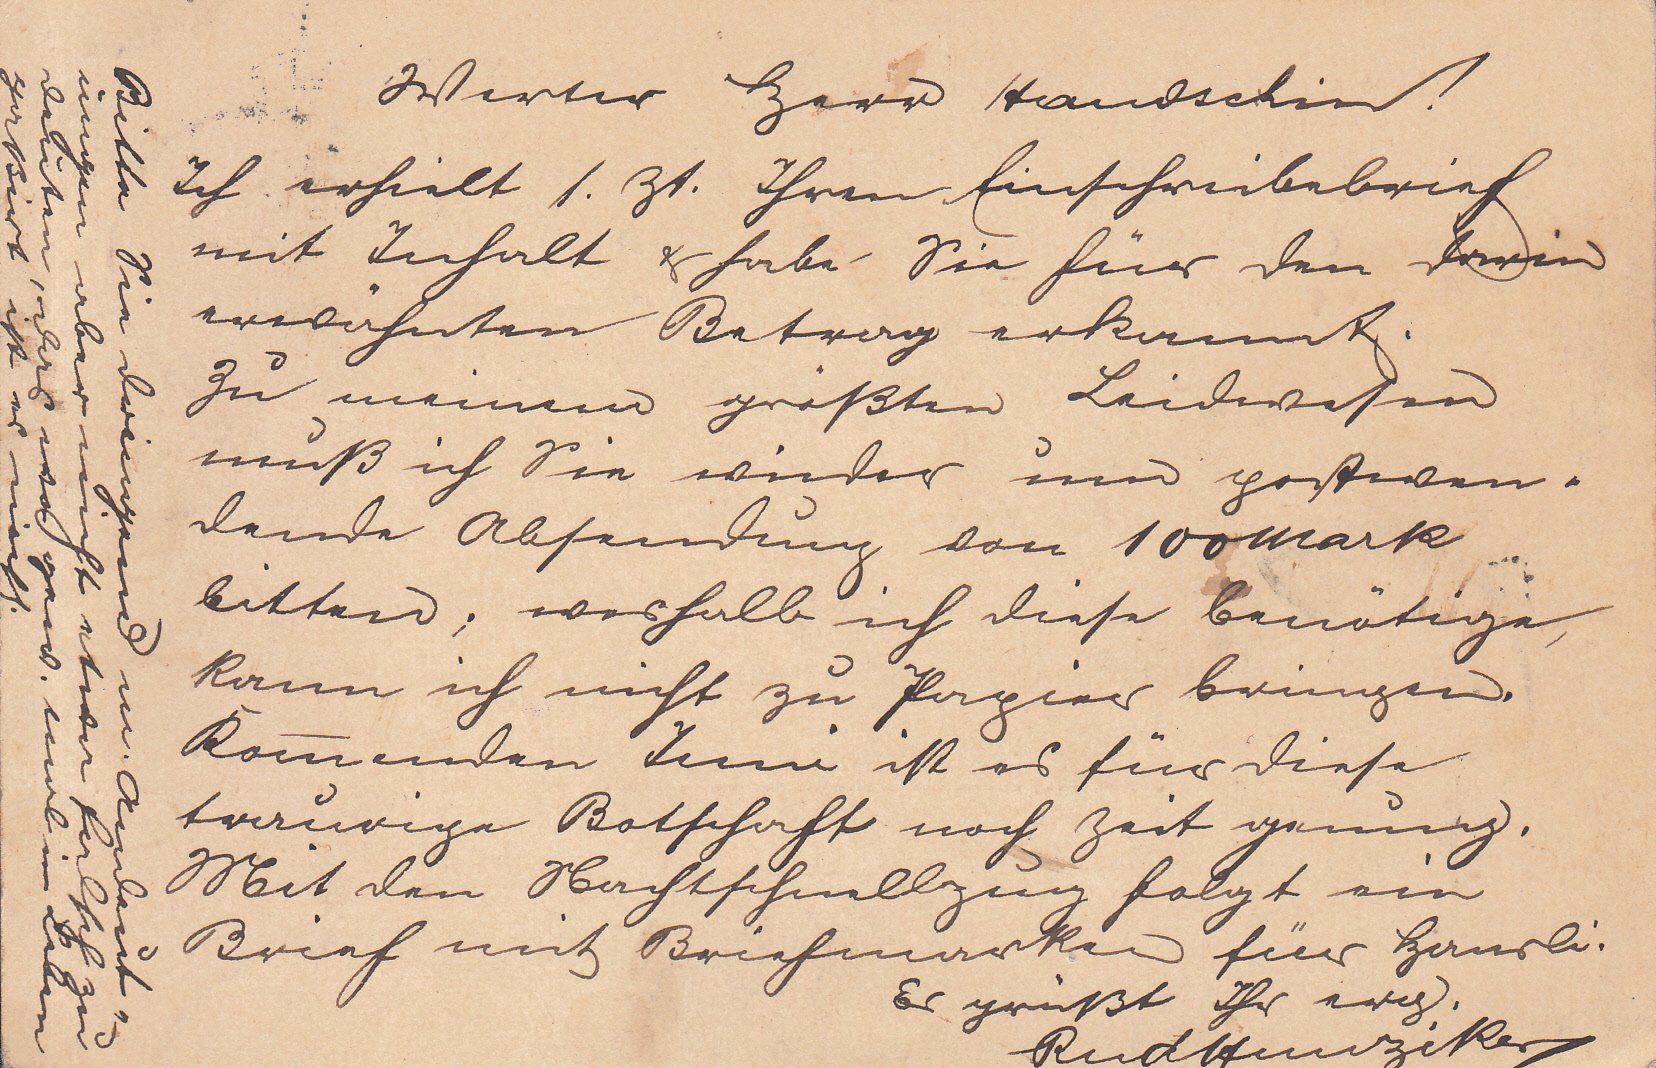 Werter Herr Handschin!
Ich erhielt s. Zt. Ihren Einschreibebrief
mit Inhalt & habe Sie für den darin
erwähnten Betrag erkannt.
Zu meinem größten Leidwesen
muß ich Sie wieder um postwen-
dende Absendung von 100 Mark
bitten; weshalb ich diese benötige,
kann ich nicht zu Papier bringen.
Kom̅enden Juni ist es für diese
traurige Botschaft noch Zeit genung.
Mit den Nachtschnellzug folgt ein
Brief mit Briefmarken für Hansli.
Es grüßt Ihr erg.
Rud Hunziker
Bitte Sie dringend m. Andeut"
ungen aber nicht etwa falsch zu
deuten, oder was gend. mal im Leben
passiert ist es nicht.